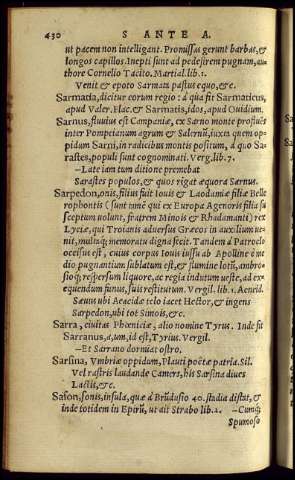 430 S ANTE A.
ut pacem non intelligant. Promissas gerunt barbas, &
longos capillos. Inepti sunt ad pedestrem pugnam, au-
thore Cornelio Tacito. Martial. lib. 1.
Venit & epoto Sarmata pastus equo, &c.
Sarmatia, dicitur eorum regio: à qua fit Sarmaticus,
apud Valer. Flac. & Sarmatis, idos, apud Ouidium.
Sarnus, fluuius est Campaniæ, ex Sarno monte profluēs
inter Pompeianum agrum & Salernū, iuxta quem op-
pidum Sarni, in radicibus montis positum, à quo Sa-
rastes, populi sunt cognominati. Verg. lib. 7.
—Late iam tum ditione premebat
Sarastes populos, & quos rigat æquora Sarnus.
Sarpedon, onis, filius fuit Iouis & Laodamiæ filiæ Belle
rophontis (sunt qui ex Europa Agenoris filia su
sceptum uolunt, fratrem Minois & Rhadamanti) rex
Lyciæ, qui Troianis aduersus Græcos in auxilium ue-
nit, multaq; memoratu digna fecit. Tandem à Patroclo
occisus est, cuius corpus Iouis iussu ab Apolline è me
dio pugnantium sublatum est, & flumine lotū, ambro-
sioq; respersum liquore, ac regia indutum ueste, ad ex-
equendum funus, suis restitutum. Vergil. lib. 1. Aeneid.
Sæuus ubi Aeacidæ telo iacet Hector, & ingens
Sarpedon, ubi tot Simois, &c.
Sarra, ciuitas Phœniciæ, alio nomine Tyrus. Inde fit
Sarranus, a, um, id est, Tyrius. Vergil.
—Et Sarrano dormiat ostro.
Sarsina, Vmbriæ oppidum, Plauti poëtæ patria. Sil.
Vel rastris laudande Camers, his Sarsina diues
Lactis, &c.
Sason, sonis, insula, quæ à Brūdusio 40. stadia distat, &
inde totidem in Epirū, ut ait Strabo lib. 2. —Cumq;
Spumoso